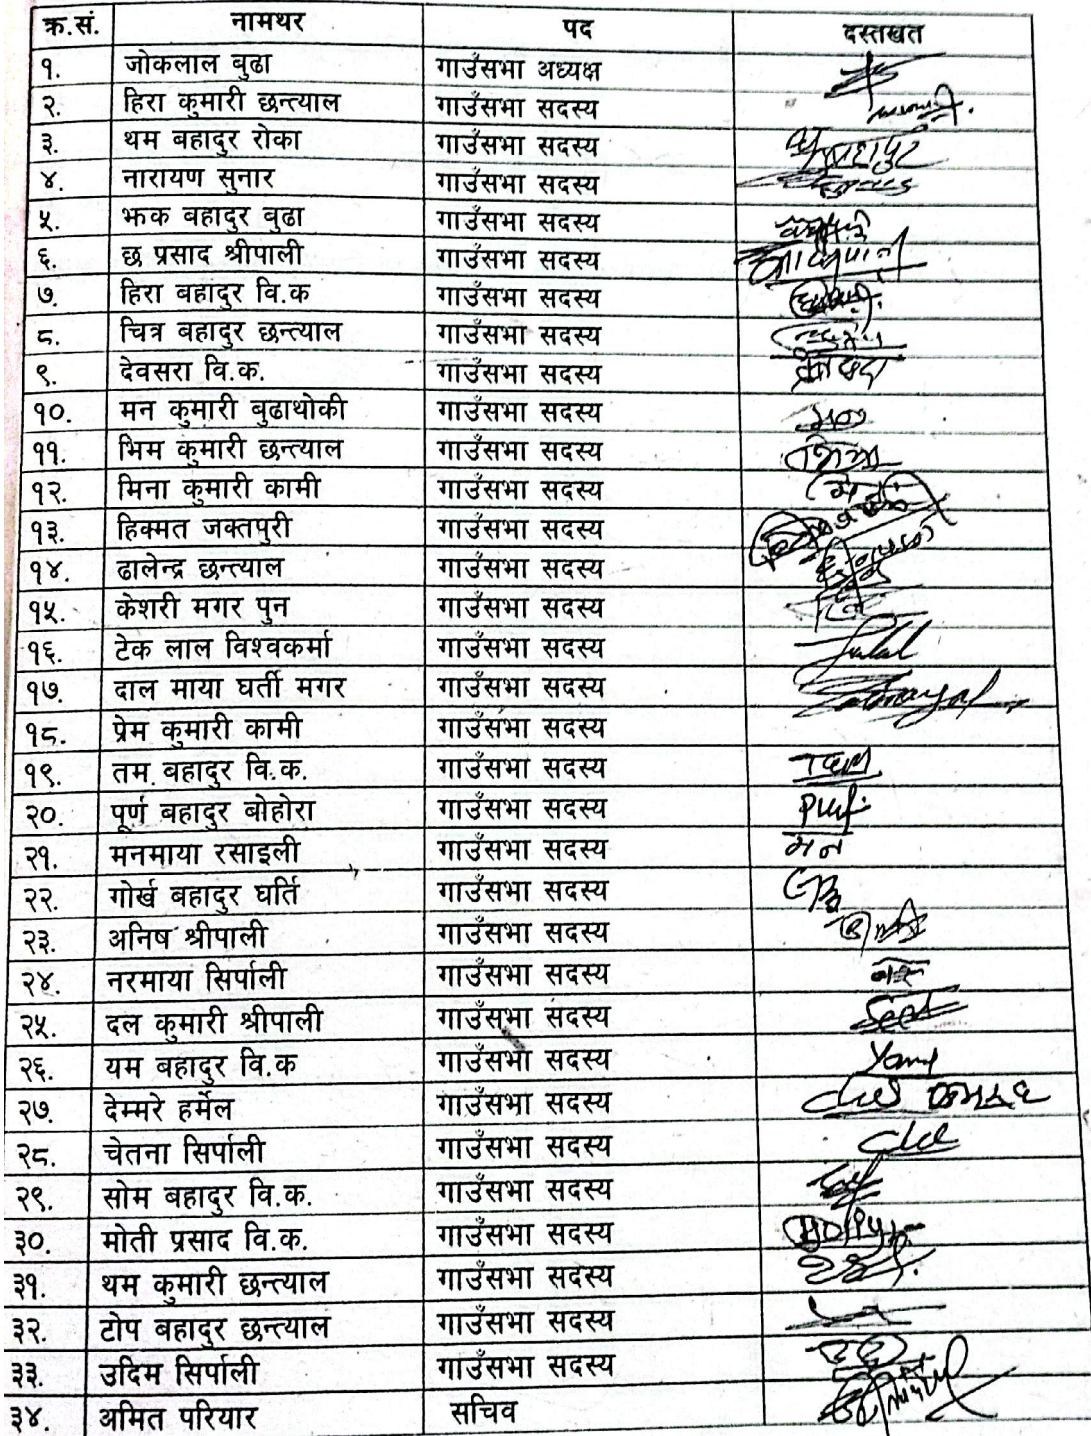 क्र.सं. नामथर पद दस्तखत
१. जोकलाल बुढा गाउँसभा अध्यक्ष
२. हिरा कुमारी छन्त्याल गाउँसभा सदस्य
३. थम बहादुर रोका गाउँसभा सदस्य
४. नारायण सुनार गाउँसभा सदस्य
५. झक बहादुर बुढा गाउँसभा सदस्य
६. छ प्रसाद श्रीपाली गाउँसभा सदस्य
७. हिरा बहादुर वि.क गाउँसभा सदस्य
८. चित्र बहादुर छन्त्याल गाउँसभा सदस्य
९. देवसरा वि.क. गाउँसभा सदस्य
१०. मन कुमारी बुढाथोकी गाउँसभा सदस्य
११. भिम कुमारी छन्त्याल गाउँसभा सदस्य
१२. मिना कुमारी कामी गाउँसभा सदस्य
१३. हिक्मत जक्तपुरी गाउँसभा सदस्य
१४. ढालेन्द्र छन्त्याल गाउँसभा सदस्य
१५. केशरी मगर पुन गाउँसभा सदस्य
१६. टेक लाल विश्वकर्मा गाउँसभा सदस्य
१७. दाल माया घर्ती मगर गाउँसभा सदस्य
१८. प्रेम कुमारी कामी गाउँसभा सदस्य
१९. तम बहादुर वि.क. गाउँसभा सदस्य
२०. पूर्ण बहादुर बोहोरा गाउँसभा सदस्य
२१. मनमाया रसाइली गाउँसभा सदस्य मन
२२. गोर्ख बहादुर घर्ति गाउँसभा सदस्य
२३. अनिष श्रीपाली गाउँसभा सदस्य
२४. नरमाया सिर्पाली गाउँसभा सदस्य
२५. दल कुमारी श्रीपाली गाउँसभा सदस्य
२६. यम बहादुर वि.क गाउँसभा सदस्य
२७. देम्मरे हर्मेल गाउँसभा सदस्य
२८. चेतना सिर्पाली गाउँसभा सदस्य
२९. सोम बहादुर वि.क. गाउँसभा सदस्य
३०. मोती प्रसाद वि.क. गाउँसभा सदस्य
३१. थम कुमारी छन्त्याल गाउँसभा सदस्य
३२. टोप बहादुर छन्त्याल गाउँसभा सदस्य
३३. उदिम सिर्पाली गाउँसभा सदस्य
३४. अमित परियार सचिव